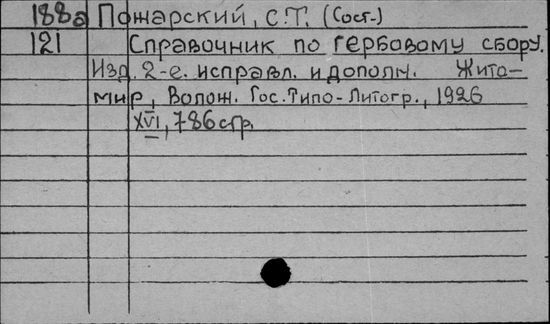 188а Пожарский, С.Т. (Сост.)
121 Справочник по гербовому сбору.
Изд. 2-е. исправл. и дополн. Жито-
мир, Волож. Гос. Типо-Литогр., 1926
XVI, 786 стр.